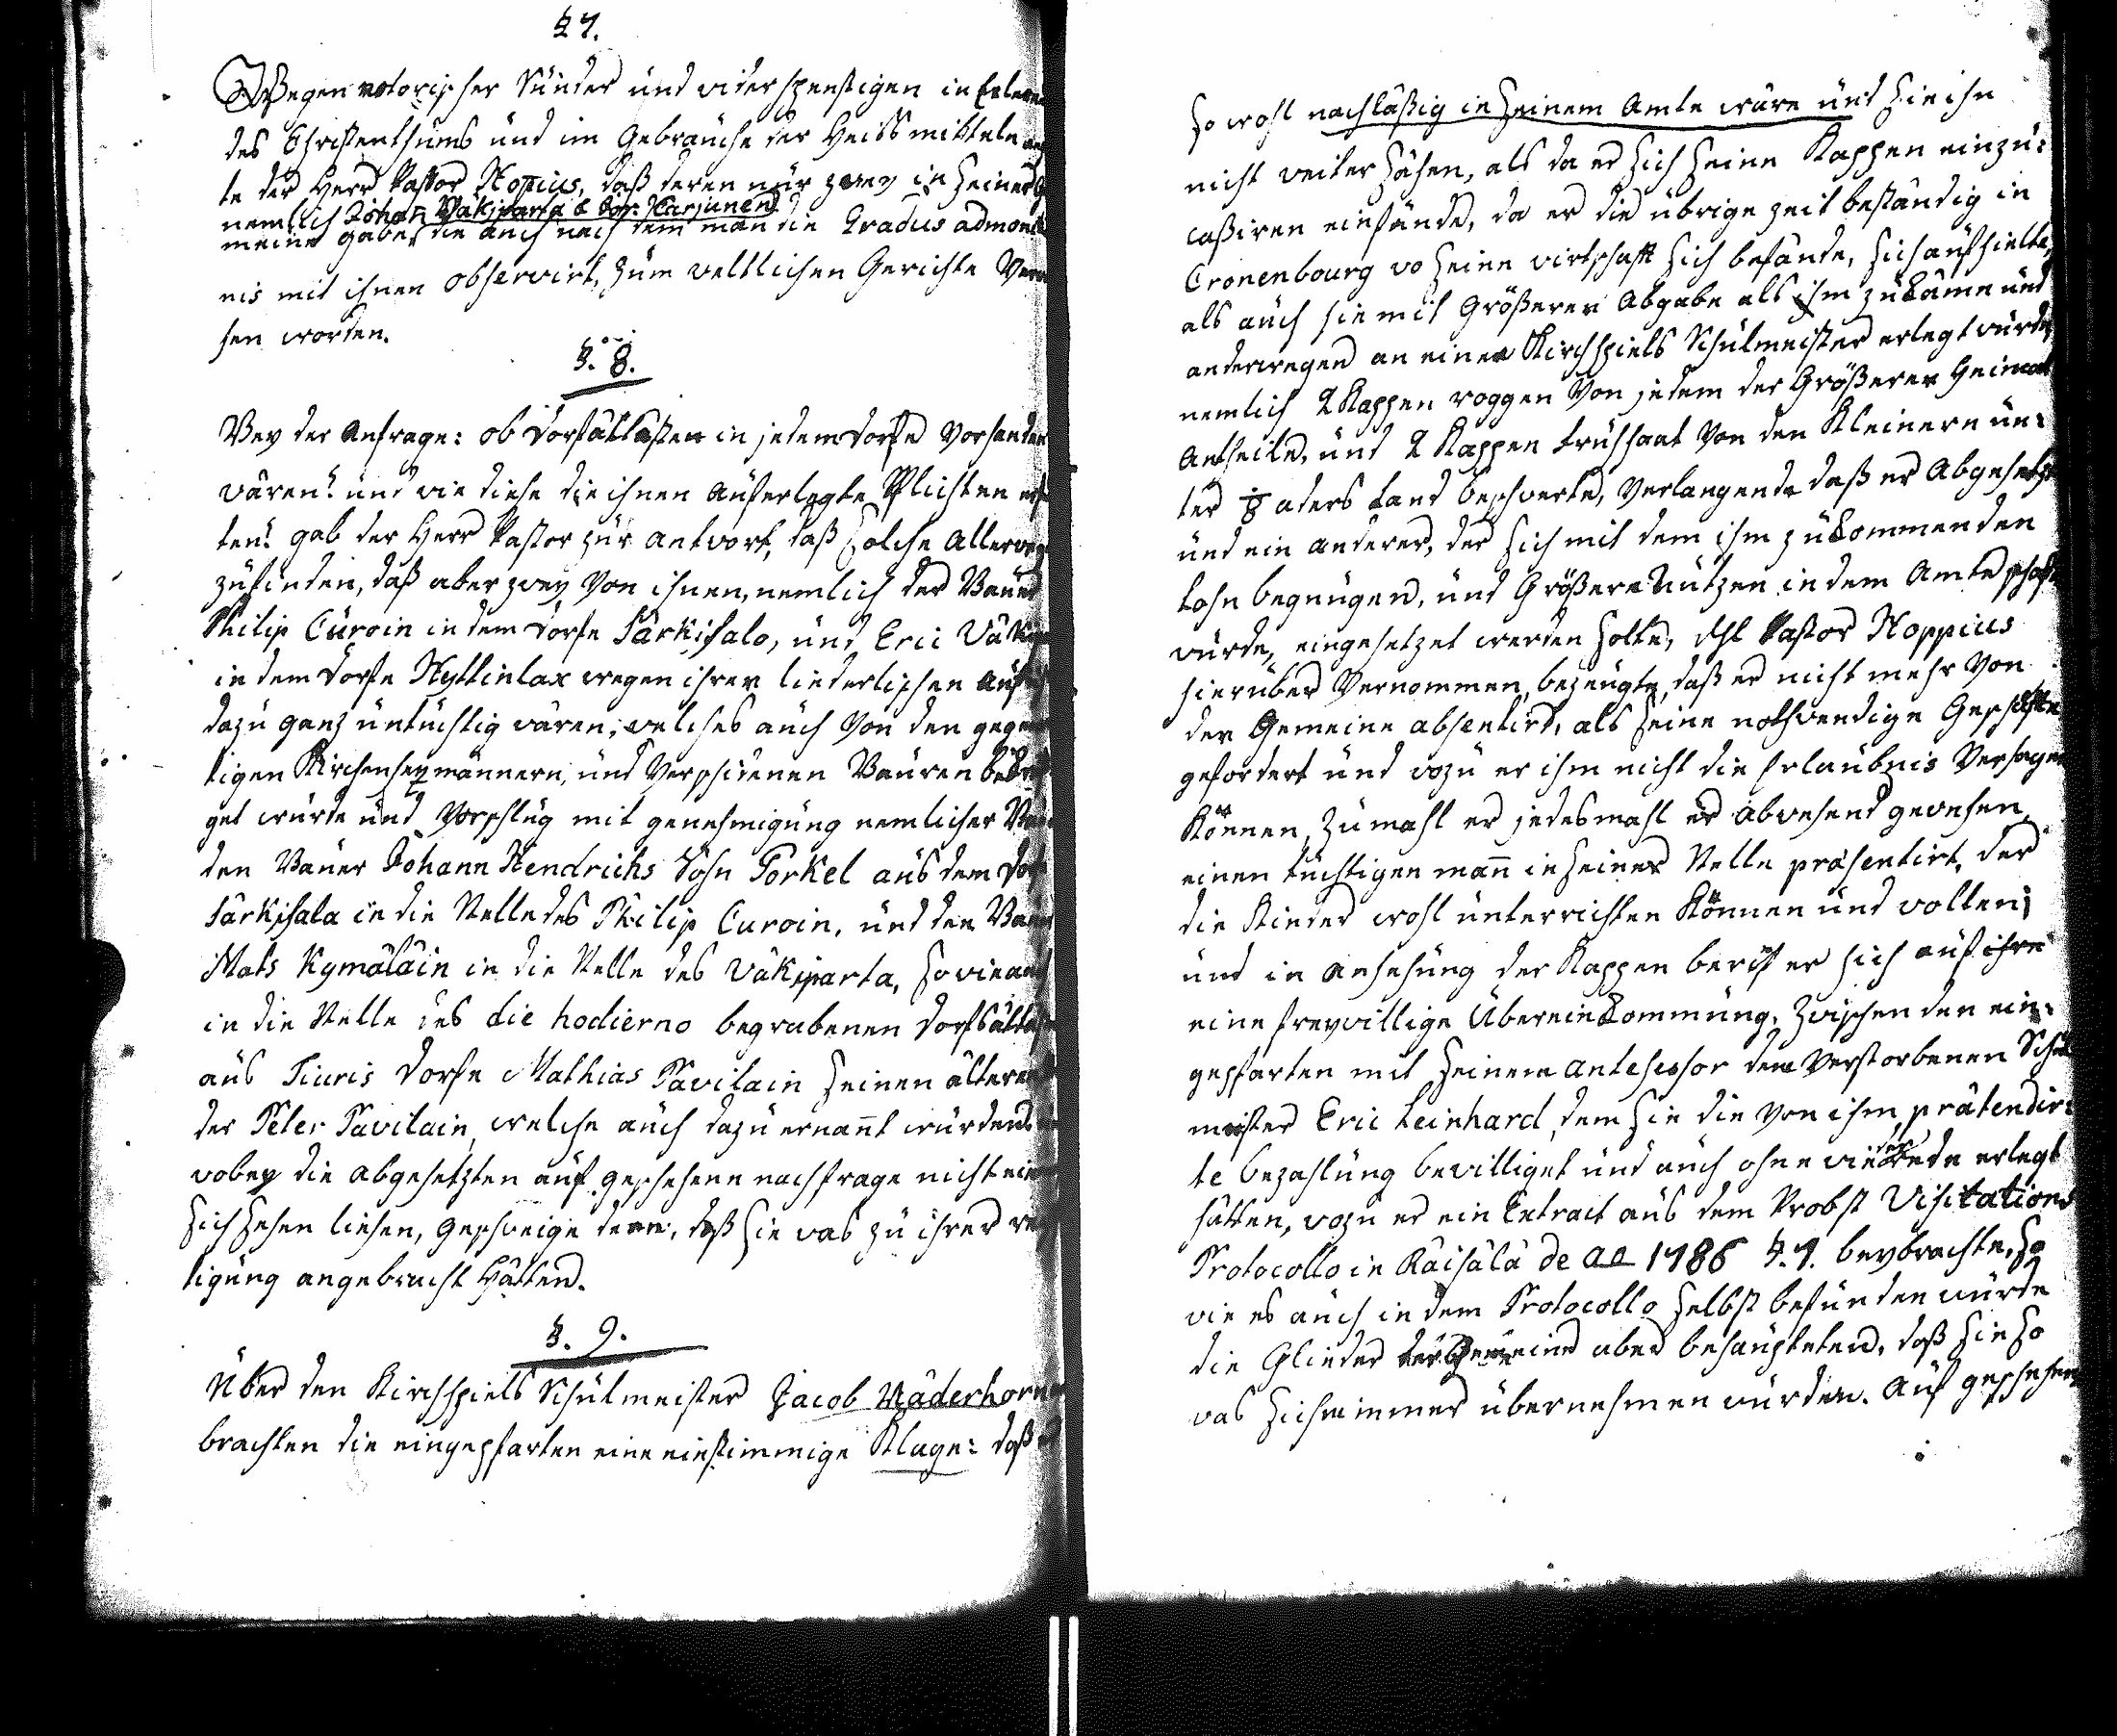 § 7.
Wegen notorischer Sünder und widerspenstigen in Erlernu
des Christenthums und im Gebrauche der Heilsmitteln
te der Herr Pastor Nopius, daß deren nur zwey in seiner Ge
nemlich Johan Väkiparta & Joh: Karjunen
meine gabe, die auch nach dem man die Gradus admonitio
nis mit ihnen observirt, zum weltlichen Gerichte Verwi
sen worden.
§. 8.
Bey der Anfrage: ob Dorfältesten in jedem Dorfe Vorhanden
wären? und wie diese die ihnen auferlegte Pflichten erfül
ten? gab der Herr Pastor zur antwort, daß solche Allerwegen
zufinden, daß aber zwey Von ihnen, nemlich der Bauer
Philip Curoin in dem Dorfe Särkisalo, und Eric Väkipa
in dem Dorfe Nyttinlax wegen ihrer liederlichen Auff
dazu ganz untüchtig wären, welches auch Von den gegenwär
tigen Kirchensexmännern, und Verschidenen Bauren bekräfti
get wurde und Vorschlug mit genehmigung nemlicher
den Bauer Johann Hendrichs Sohn Torkel aus dem Dorf
Särkisala in die Stelle des Philip Curoin, und den Bauer
Mats Kymäläin in die Stelle des Väkiparta, so wie auch
in die Stelle des die hodierno begrabenen Dorfsältesten
aus Tiuris Dorfe Mathias Pavilain seinen ältere
der Peter Pavilain, welche auch dazu ernant wurden,
wobey die Abgesetzten auf geschehene nachfrage nicht ein
sich sehen liesen, geschweige denn, daß sie was zu ihrer
tigung angebracht Hätten.
§. 9.
Über den Kirchspiels Schulmeister Jacob Mäderhorn
brachten die eingepfarten eine einstimmige Klage: daß er
so wohl nachläßig in seinem Amte wäre und sie ihn
nicht weiter sähen, als da er sich seine Kappen einzu:
caßiren einfände, da er die übrige zeit beständig in
Cronenbourg wo seine wirtschafft sich befände, sich aufhielte,
als auch sie mit Größerer Abgabe als ihm zukäme und
anderwegen an einen Kirchspiels Schulmeister erlegt würde,
nemlich 2 Kappen roggen Von jedem der Größeren Heimat
Antheile, und 2 Kappen Früh saat Von den Kleinern un:
ter 1/8 aders Land beschwerte, Verlangende daß er Abgesetzt
und ein anderer, der sich mit dem ihm zukommenden
Lohn begnügen, und Größere Nutzen in dem Amte schaffen
würde, eingesetzet werden solte, Hl Pastor Noppius
hierüber Vernommen, bezeugte, daß er nicht mehr Von
der Gemeine absentirt, als seine nothwendige Geschäfte
gefordert und wozu er ihm nicht die Erlaubnis Versagen
Können, Zumahl er jedesmahl er abwesend gewesen,
einen tüchtigen man in seiner Stelle präsentirt, der
die Kinder wohl unterrichten Können und wollen;
und in Ansehung der Kappen berief er sich auf ihre
eine freywillige Übereinkommung, Zwischen den ein:
gepfarten mit seinem Antesessor dem Verstorbenen Schul
meister Eric Leinhard, dem sie die Von ihm prätendir:
te bezahlung bewilliget und auch ohne wiederrede erlegt
hätten, wozu er ein Extract aus dem Probst Visitations
Protocollo in Räisälä de ao 1786 §. 9. beybrachte, so
wie es auch in dem Protocollo selbst befunden wurde
die Glieder der Gemeine aber behaupteten, daß sie so
was sich nimmer übernehmen würden. Auf geschehene